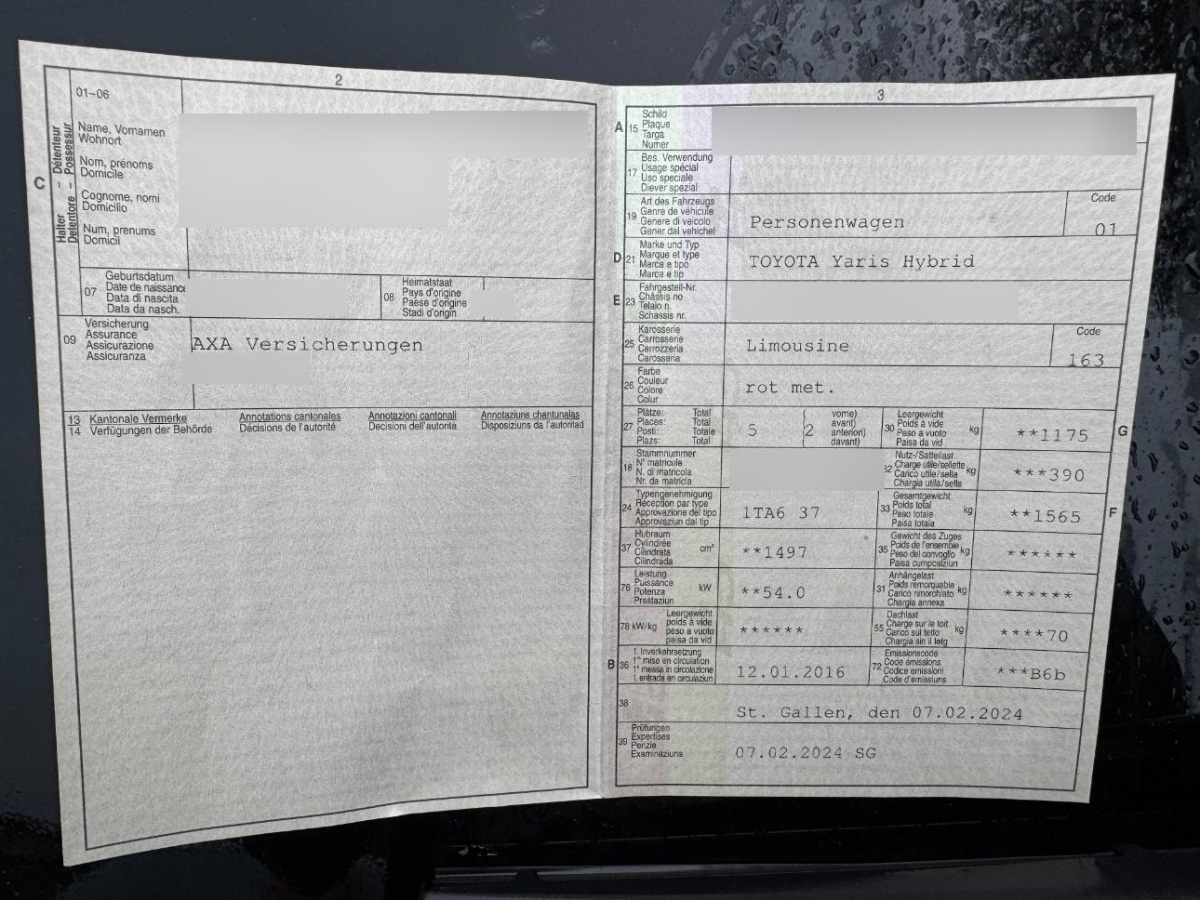 2
01-06
C
Halter - Détenteur
Detentore - Possessur
Name, Vornamen
Wohnort
Nom, prénoms
Domicile
Cognome, nomi
Domicilio
Num, prenums
Domicil
07
Geburtsdatum
Date de naissance
Data di nascita
Data da nasch.
08
Heimatstaat
Pays d'origine
Paese d'origine
Stadi d'origin
09
Versicherung
Assurance
Assicurazione
Assicuranza
AXA Versicherungen
13 Kantonale Vermerke Annotations cantonales Annotazioni cantonali Annotaziuns chantunalas
14 Verfügungen der Behörde Décisions de l'autorité Decisioni dell'autorità Disposiziuns da l'autoritad
3
A 15
Schild
Plaque
Targa
Numer
17
Bes. Verwendung
Usage spécial
Uso speciale
Diever spezial
19
Art des Fahrzeugs
Genre de véhicule
Genere di veicolo
Gener dal vehichel
Personenwagen
Code
01
D 21
Marke und Typ
Marque et type
Marca e tipo
Marca e tip
TOYOTA Yaris Hybrid
E 23
Fahrgestell-Nr.
Châssis no
Telaio n.
Schassis nr.
25
Karosserie
Carrosserie
Carrozzeria
Carossaria
Limousine
Code
163
26
Farbe
Couleur
Colore
Colur
rot met.
27
Plätze: Total
Places: Total
Posti: Totale
Plazs: Total
5
(2
vorne)
avant)
anteriori)
davant)
30
Leergewicht
Poids à vide
Peso a vuoto
Paisa da vid
kg
**1175
G
18
Stammnummer
N° matricule
N. di matricola
Nr. da matricla
32
Nutz-/Sattellast
Charge utile/sellette
Carico utile/sella
Chargia utila/sella
kg
***390
24
Typengenehmigung
Réception par type
Approvazione del tipo
Approvaziun dal tip
1TA6 37
33
Gesamtgewicht
Poids total
Peso totale
Paisa totala
kg
**1565
F
37
Hubraum
Cylindrée
Cilindrata
Cilindrada
cm³
**1497
35
Gewicht des Zuges
Poids de l'ensemble
Peso del convoglio
Paisa cumposiziun
kg
******
76
Leistung
Puissance
Potenza
Prestaziun
kW
**54.0
31
Anhängelast
Poids remorquable
Carico rimorchiato
Chargia annexa
kg
******
78 kW/kg
Leergewicht
poids à vide
peso a vuoto
paisa da vid
******
55
Dachlast
Charge sur le toit
Carico sul tetto
Chargia sin il tetg
kg
****70
B 36
1. Inverkehrsetzung
1re mise en circulation
1a messa in circolazione
1. entrada en circulaziun
12.01.2016
72
Emissionscode
Code émissions
Codice emissioni
Code d'emissiuns
***B6b
38
St. Gallen, den 07.02.2024
39
Prüfungen
Expertises
Perizie
Examinaziuns
07.02.2024 SG